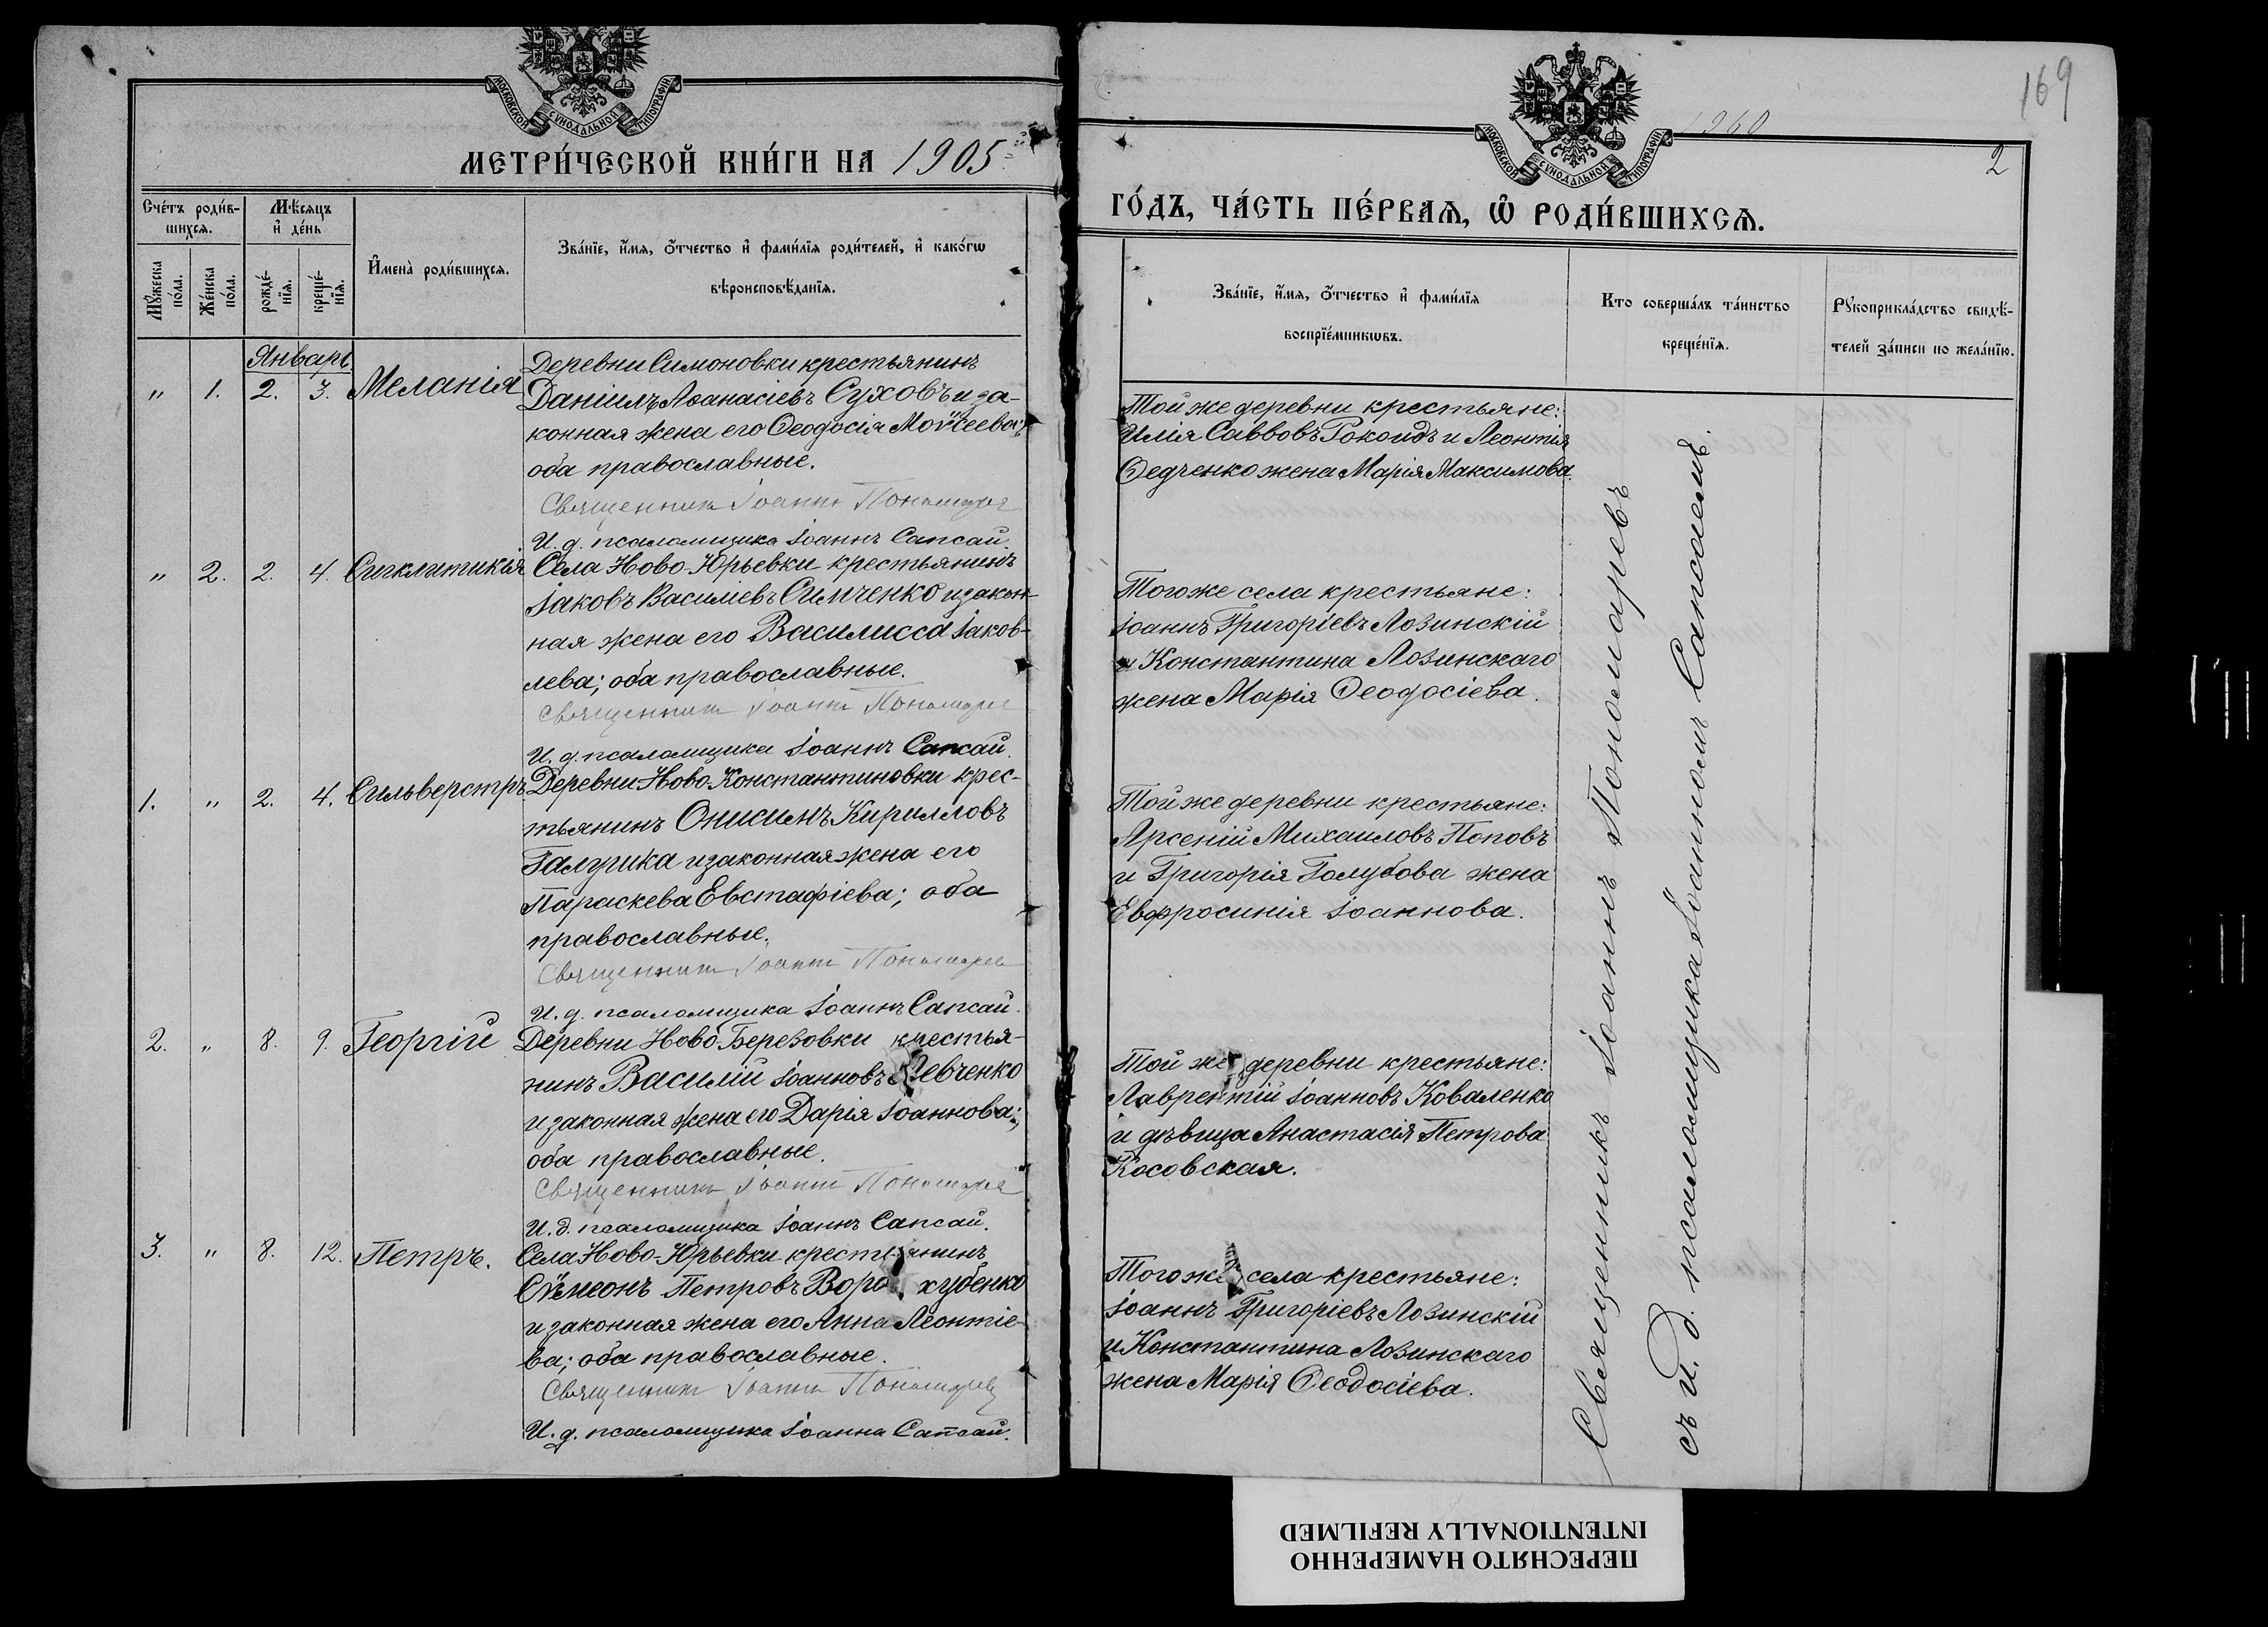 МОСКОВСКОЙ СѴНОДАЛЬНОЙ ТИПОГРАФІИ
МЕТРИ́ЧЕСКОЙ КНИ́ГИ НА 1905
Сче́тъ роди́в-
шихсѧ.
Мѣ́сѧцъ
и҆ де́нь
Мꙋ́жеска
по́ла.
Же́нска
по́ла.
рожде́-
нїѧ.
креще́-
нїѧ.
И҆мена̀ роди́вшихсѧ.
Зва́нїе, и҆́мѧ, ѻ҆́тчество и҆ фами́лїѧ роди́телей, и҆ како́гѡ
вѣроисповѣ́данїѧ.
Январь
" 1. 2. 3. Меланія
Деревни Симоновки крестьянинъ
Даніилъ Аѳанасіевъ Суховъ и за-
конная жена его Ѳеодосія Моѵсеева;
оба православные.
Священникъ Іоаннъ Пономарев
И. д. псаломщика Іоаннъ Сапсай.
" 2. 2. 4. Сигклитикія
Села Ново-Юрьевки крестьянинъ
Іаковъ Василіевъ Симченко и закон-
ная жена его Василисса Іаков-
лева; оба православные.
Священникъ Іоаннъ Пономарев
И. д. псаломщика Іоаннъ Сапсай.
1. " 2. 4. Сильверстръ.
Деревни Ново-Константиновки крес-
тьянинъ Онисимъ Кирилловъ
Галушка и законная жена его
Параскева Евстафіева; оба
православные.
Священникъ Іоаннъ Пономарев
И. д. псаломщика Іоаннъ Сапсай.
2. " 8. 9. Георгій
Деревни Ново-Березовки крестья-
нинъ Василій Іоанновъ
и законная жена его Дарія Іоаннова;
оба православные.
Священникъ Іоаннъ Пономарев
И. д. псаломщика Іоаннъ Сапсай.
3. " 8. 12. Петръ.
Села Ново-Юрьевки крестьянинъ
Сѵмеонъ Петровъ
и законная жена его Анна Леонтіе-
ва; оба православные.
Священникъ Іоаннъ Пономарев
И. д. псаломщика Іоанна Сапсай.
169
1960
МОСКОВСКОЙ СѴНОДАЛЬНОЙ ТИПОГРАФІИ
2
ГО́ДЪ, ЧА́СТЬ ПЕ́РВАѦ, Ѽ РОДИ́ВШИХСѦ.
Зва́нїе, и҆́мѧ, ѻ҆́тчество и҆ фами́лїѧ
воспрїе́мникѡвъ.
Кто соверша́лъ та́инство
креще́нїѧ.
Рꙋкоприкла́дство свидѣ́-
телей за́писи по жела́нїю.
Той же деревни крестьяне:
Илія Саввовъ Рокоидъ и Леонтія
Ѳедченко жена Марія Максимова.
Того же села крестьяне:
Іоаннъ Григоріевъ Лозинскій
и Константина Лозинскаго
жена Марія Ѳеодосіева.
Той же деревни крестьяне:
Арсеній Михаиловъ Поповъ
и Григорія Голубова жена
Евфросинія Іоаннова.
Той же деревни крестьяне:
Лаврентій Іоанновъ Коваленко
и дѣвица Анастасія Петрова
Косовская.
Того же села крестьяне:
Іоаннъ Григоріевъ Лозинскій
и Константина Лозинскаго
жена Марія Ѳеодосіева.
Священникъ Іоаннъ Пономаревъ
съ и. д. псаломщика Іоанномъ Сапсаемъ.
ПЕРЕСНЯТО НАМЕРЕННО
INTENTIONALLY REFILMED